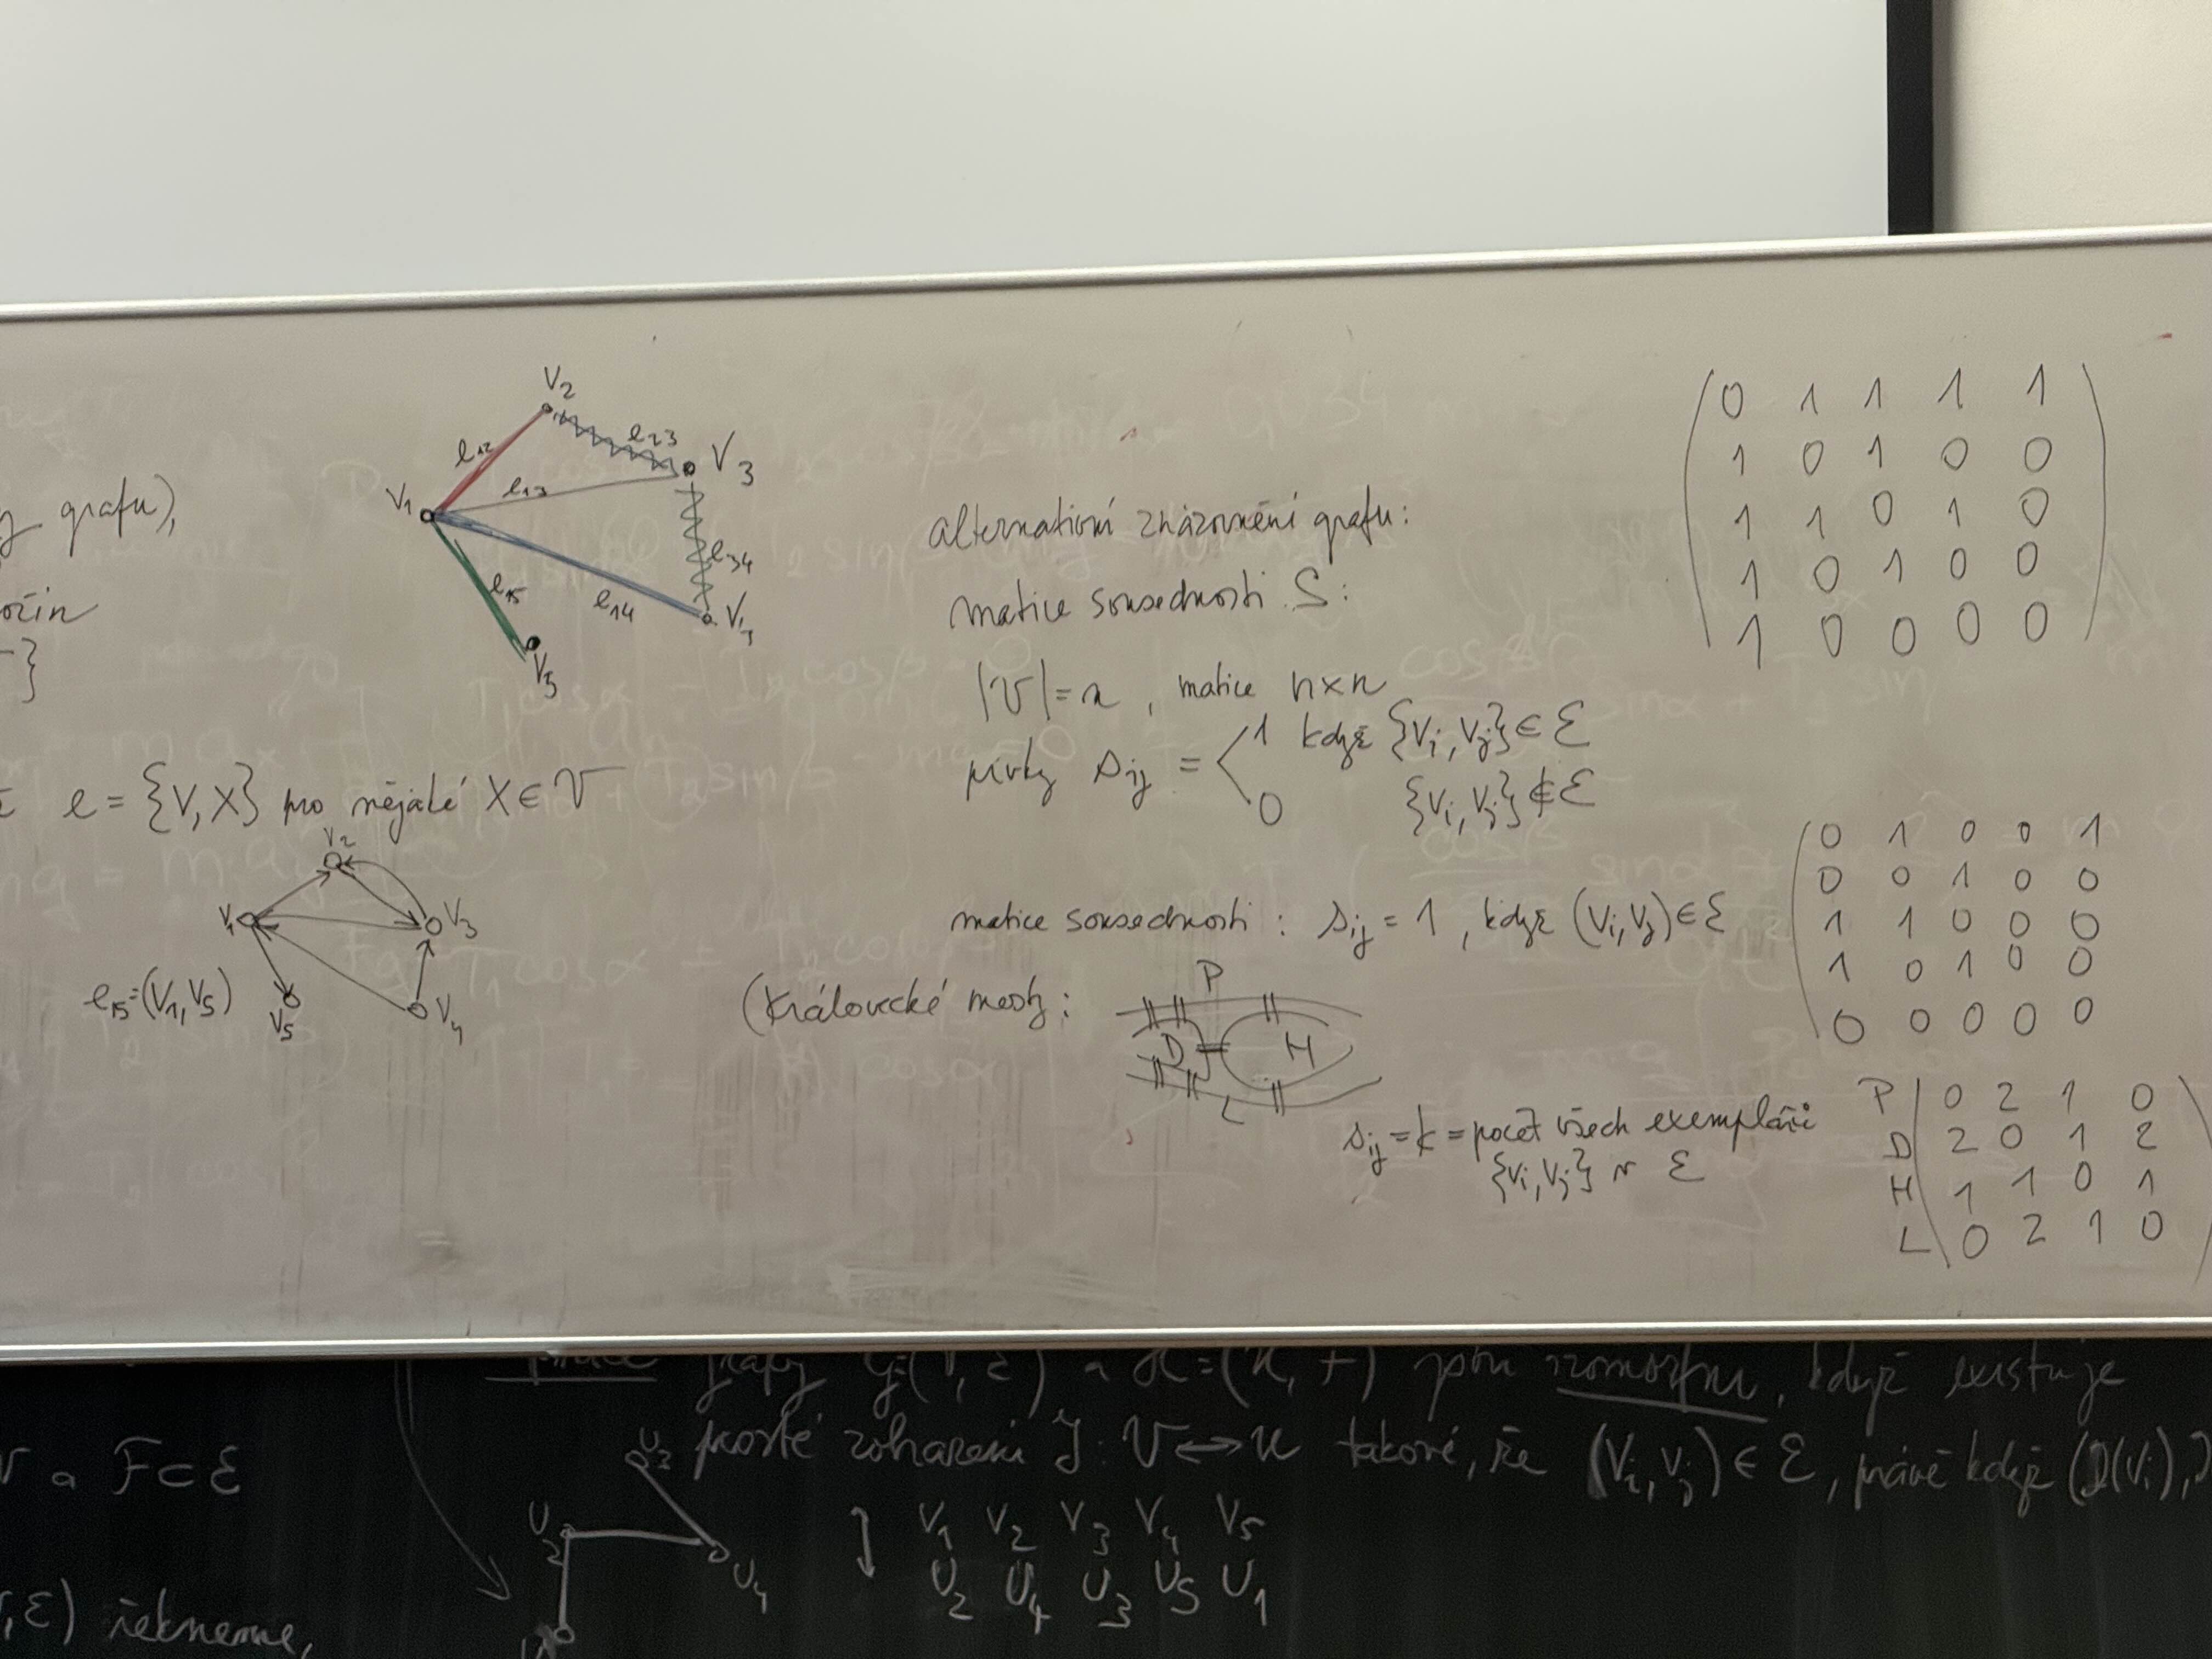 grafu),
V2
e12
e23
V3
V1
e13
e34
e15
e14
V5
e = {V, X} pro nějaké X ∈ V
V2
V1
V3
e15=(V1,V5)
V5
V4
alternativní znázornění grafu:
matice sousednosti S:
|V| = n, matice n×n
prvky sij = 1 když {Vi, Vj} ∈ E
0 {Vi, Vj} ∉ E
0 1 1 1 1
1 0 1 0 0
1 1 0 1 0
1 0 1 0 0
1 0 0 0 0
matice sousednosti : sij = 1, když (Vi,Vj) ∈ E
0 1 0 0 1
0 0 1 0 0
1 1 0 0 0
1 0 1 0 0
0 0 0 0 0
(Královecké mosty:
P
D H
L
sij = k = počet všech exemplářů
{Vi,Vj} v E
P 0 2 1 0
D 2 0 1 2
H 1 1 0 1
L 0 2 1 0
grafy G=(V, E) a jsou izomorfní, když existuje
prosté zobrazení J: V ↔ U takové, že (Vi, Vj) ∈ E, právě když (J(Vi), J
a F ⊂ E
U3
U2
U4
V1 V2 V3 V4 V5
U2 U4 U3 U5 U1
, E) řekneme,